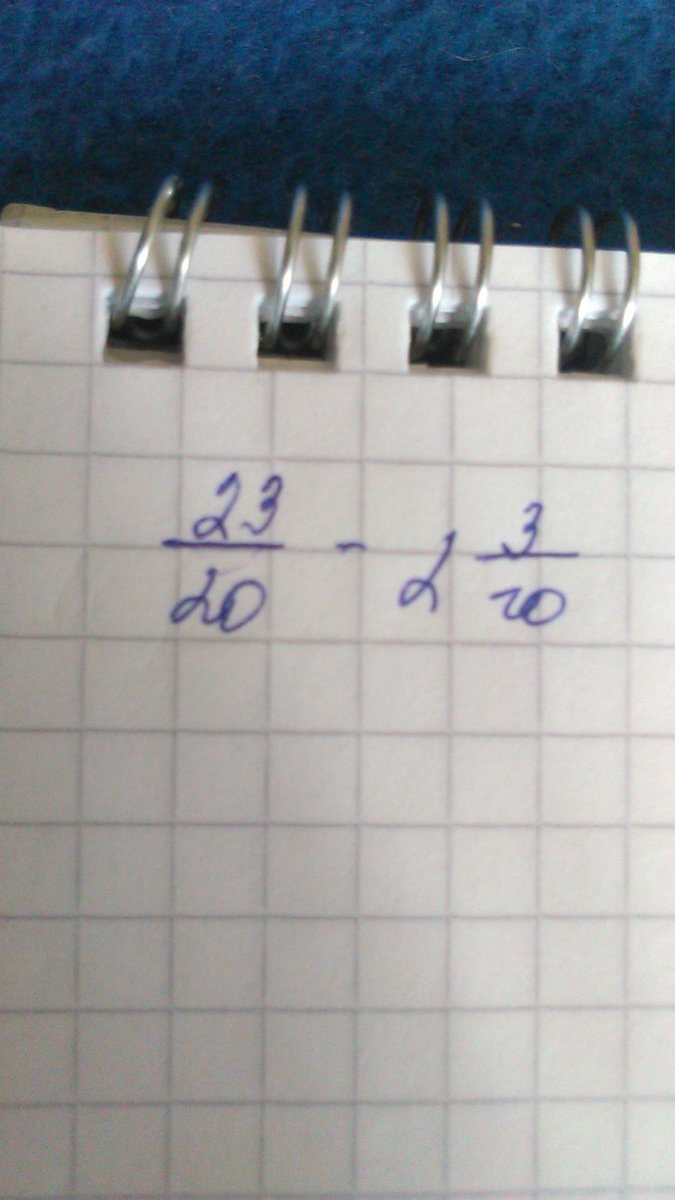 23/20 - 2 3/20